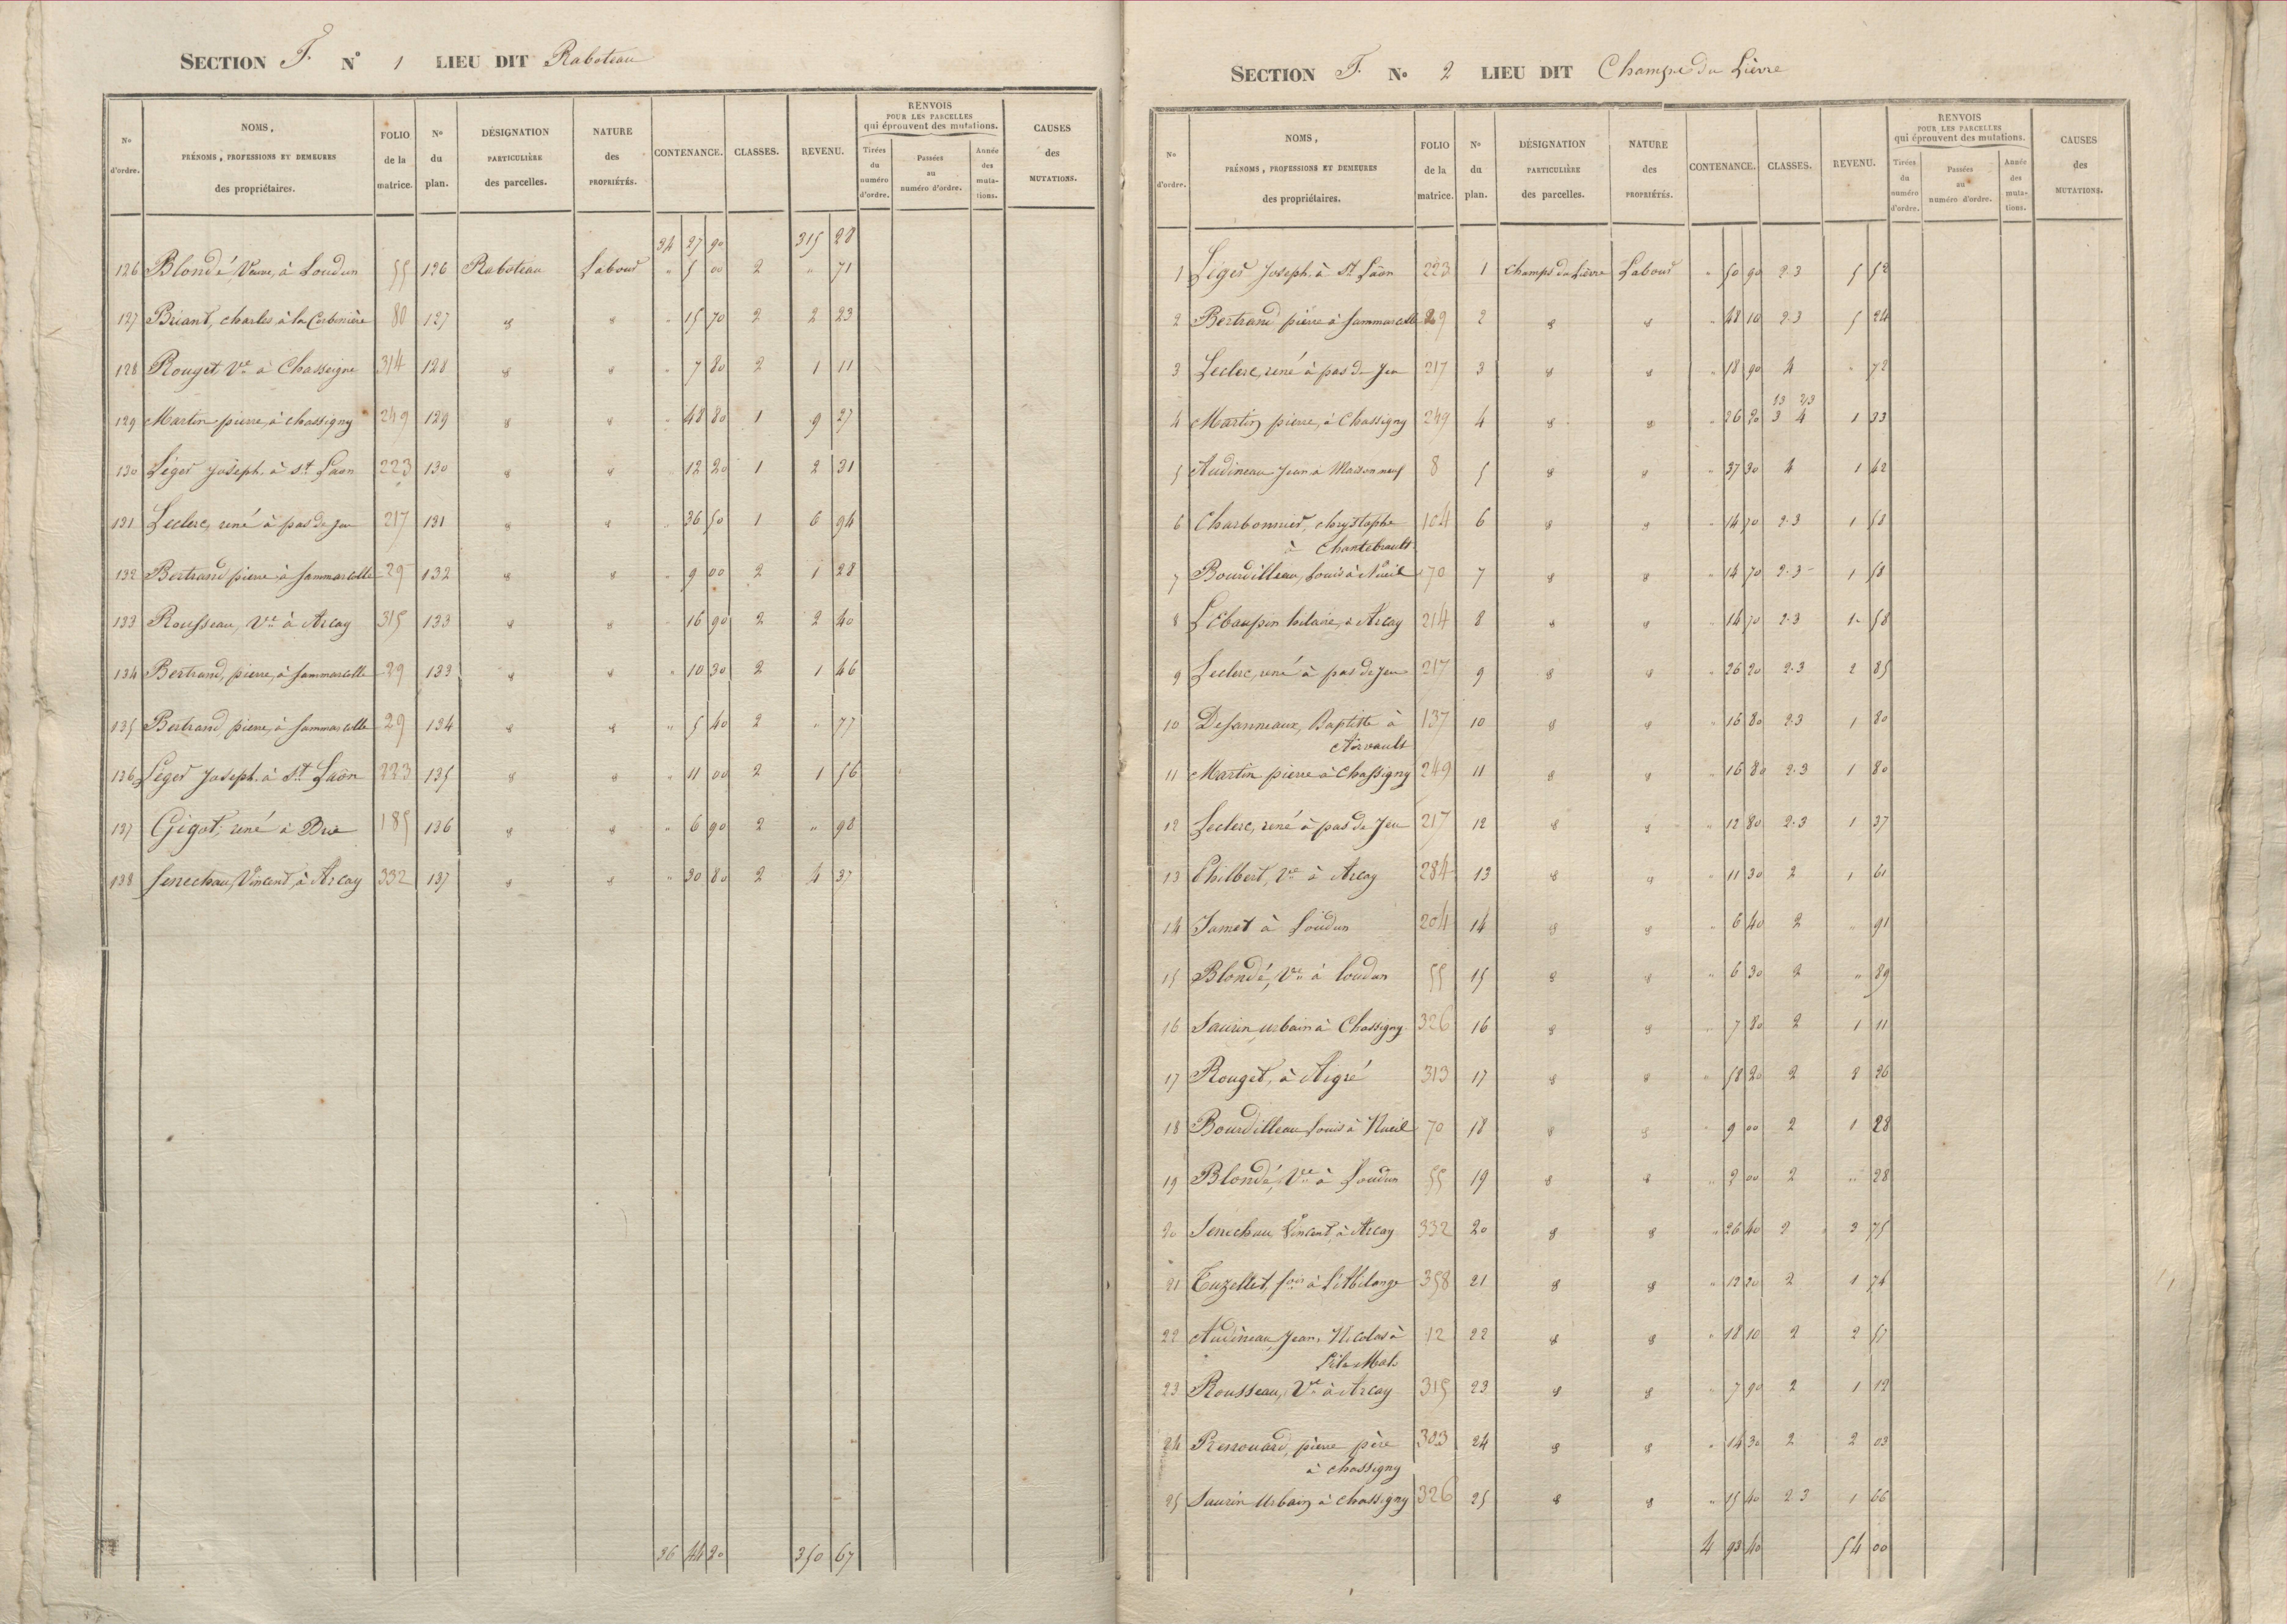 SECTION F. N° 1 LIEU DIT Raboteau
N° d'ordre. NOMS, PRÉNOMS, PROFESSIONS ET DEMEURES des propriétaires. FOLIO de la matrice. N° du plan. DÉSIGNATION PARTICULIÈRE des parcelles. NATURE des PROPRIÉTÉS. CONTENANCE. CLASSES. REVENU. RENVOIS POUR LES PARCELLES qui éprouvent des mutations. Tirées du numéro d'ordre. Passées au numéro d'ordre. Année des mutations. CAUSES des MUTATIONS.
34 27 90 315 28
126 Blondé Veuve, à Loudun 55 126 Raboteau Labour " 5 00 2 " 71
127 Briant, charles à la Corbinière 80 127 d d " 15 70 2 2 23
128 Rouget Ve à Chasseigne 314 128 d d " 7 80 2 1 11
129 Martin pierre, à chassigny 249 129 d d " 48 80 1 9 27
130 Léger Joseph. à St Laon 223 130 d d " 12 20 1 2 31
131 Leclerc, rené à pas de Jeu 217 131 d d " 36 50 1 6 94
132 Bertrand pierre à Sammarcolle 29 132 d d " 9 00 2 1 28
133 Rousseau, Ve à Arcay 315 133 d d " 16 90 2 2 40
134 Bertrand, pierre, à Sammarcolle 29 133 d d " 10 30 2 1 46
135 Bertrand pierre, à Sammarcolle 29 134 d d " 5 40 2 " 77
136 Léger Joseph. à St Laön 223 135 d d " 11 00 2 1 56
137 Gigot, rené à Brie 185 136 d d " 6 90 2 " 98
138 Senechau, Vincent, à Arcay 332 137 d d " 30 80 2 4 37
36 44 20 350 67
SECTION F. N° 2 LIEU DIT Champs du Lièvre
N° d'ordre. NOMS, PRÉNOMS, PROFESSIONS ET DEMEURES des propriétaires. FOLIO de la matrice. N° du plan. DÉSIGNATION PARTICULIÈRE des parcelles. NATURE des PROPRIÉTÉS. CONTENANCE. CLASSES. REVENU. RENVOIS POUR LES PARCELLES qui éprouvent des mutations. Tirées du numéro d'ordre. Passées au numéro d'ordre. Année des mutations. CAUSES des MUTATIONS.
1 Léger Joseph. à St Laön 223 1 Champs du Lièvre Labour " 50 90 2.3 5 52
2 Bertrand pierre à Sammarcolle 29 2 d d " 48 10 2.3 5 24
3 Leclerc, rené à pas de Jeu 217 3 d d " 18 90 4 " 72
1/3 2/3
4 Martin pierre, à Chassigny 249 4 d d " 26 20 3 4 1 33
5 Audineau Jean à Maison neuf 8 5 d d " 37 30 4 1 42
6 Charbonnier, chrystophe 104 6 d d " 14 70 2.3 1 58
à Chantebrault
7 Bourdilleau, Louis à Nueil 70 7 d d " 14 70 2.3 1 58
8 Lebaupin hilaire, à Arcay 214 8 d d " 14 70 2.3 1 58
9 Leclerc, rené à pas de Jeu 217 9 d d " 26 20 2.3 2 85
10 Desanneaux, Baptiste à 137 10 d d " 16 80 2.3 1 80
Airvault
11 Martin pierre à Chassigny 249 11 d d " 16 80 2.3 1 80
12 Leclerc, rené à pas de Jeu 217 12 d d " 12 80 2.3 1 37
13 Philbert, Ve à Arcay 284 13 d d " 11 30 2 1 61
14 Jamet à Loudun 204 14 d d " 6 40 2 " 91
15 Blondé, Ve à loudun 55 15 d d " 6 30 2 " 89
16 Saurin urbain à Chassigny 326 16 d d " 7 80 2 1 11
17 Rouget, à Aigré 313 17 d d " 58 20 2 8 26
18 Bourdilleau Louis à Nueil 70 18 d d " 9 00 2 1 28
19 Blondé, Ve à Loudun 55 19 d d " 2 00 2 " 28
20 Senechau Vincent, à Arcay 332 20 d d " 26 40 2 3 75
21 Tuzellet, fois à 358 21 d d " 12 20 2 1 74
22 Audineau Jean, Nicolas à 12 22 d d " 18 10 2 2 57
23 Rousseau, Ve à Arcay 315 23 d d " 7 90 2 1 12
24 Pressouard, pierre père 303 24 d d " 14 30 2 2 03
à chassigny
25 Saurin Urbain à chassigny 326 25 d d " 15 40 2 3 1 66
4 93 40 54 00